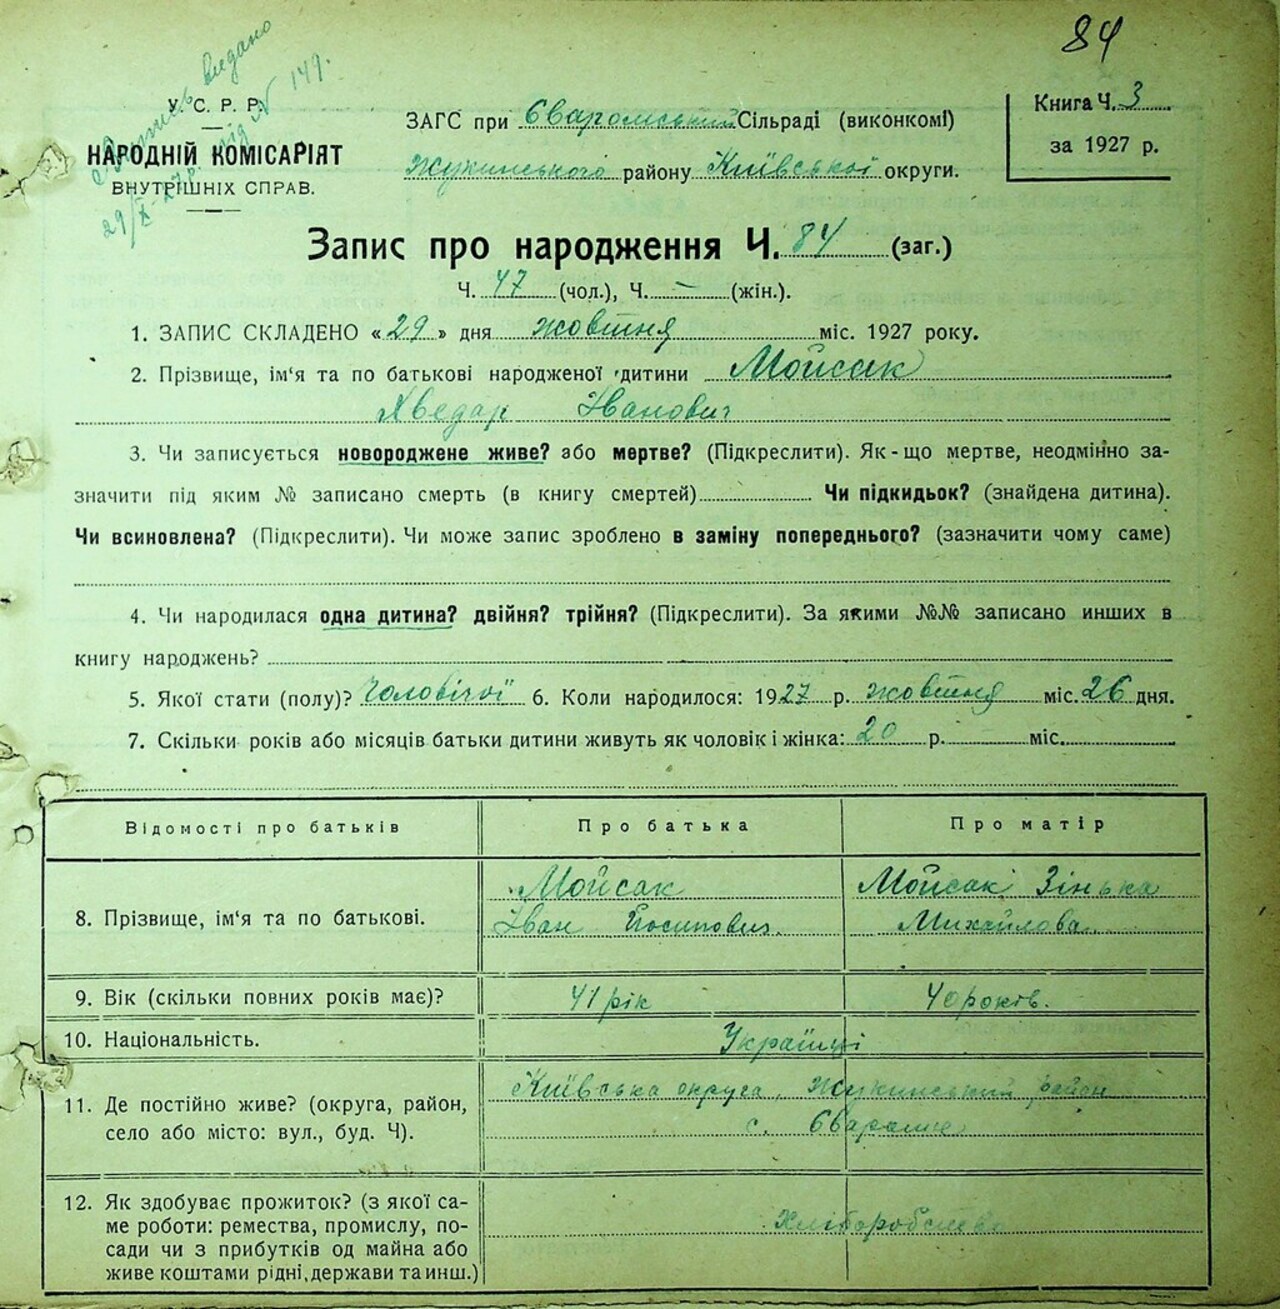 84
видано
149.
У. С. Р. Р.
НАРОДНІЙ КОМІСАРІЯТ
ВНУТРІШНІХ СПРАВ.
29/X-27р. від №
ЗАГС при Сваромський Сільраді (виконкомі)
Жукинського району Київської округи.
Книга Ч. 3
за 1927 р.
Запис про народження Ч. 84 (заг.)
Ч. 47 (чол.), Ч. – (жін.).
1. ЗАПИС СКЛАДЕНО «29» дня жовтня міс. 1927 року.
2. Прізвище, ім'я та по батькові народженої дитини Мойсак
Хведар Іванович
3. Чи записується новороджене живе? або мертве? (Підкреслити). Як-що мертве, неодмінно за-
значити під яким № записано смерть (в книгу смертей) Чи підкидьок? (знайдена дитина).
Чи всиновлена? (Підкреслити). Чи може запис зроблено в заміну попереднього? (зазначити чому саме)
4. Чи народилася одна дитина? двійня? трійня? (Підкреслити). За якими №№ записано инших в
книгу народжень?
5. Якої стати (полу)? Чоловічої 6. Коли народилося: 1927 р. жовтня міс. 26 дня.
7. Скільки років або місяців батьки дитини живуть як чоловік і жінка: 20 р. міс.
Відомості про батьків Про батька Про матір
8. Прізвище, ім'я та по батькові. Мойсак Іван Йосипович Мойсак Зінька Михайлова
9. Вік (скільки повних років має)? 41 рік 40 років.
10. Національність. Українці
11. Де постійно живе? (округа, район, Київська округа, Жукинський район
село або місто: вул., буд. Ч). с. Сваромле
12. Як здобуває прожиток? (з якої са-
ме роботи: ремества, промислу, по- Хліборобство
сади чи з прибутків од майна або
живе коштами рідні, держави та инш.)